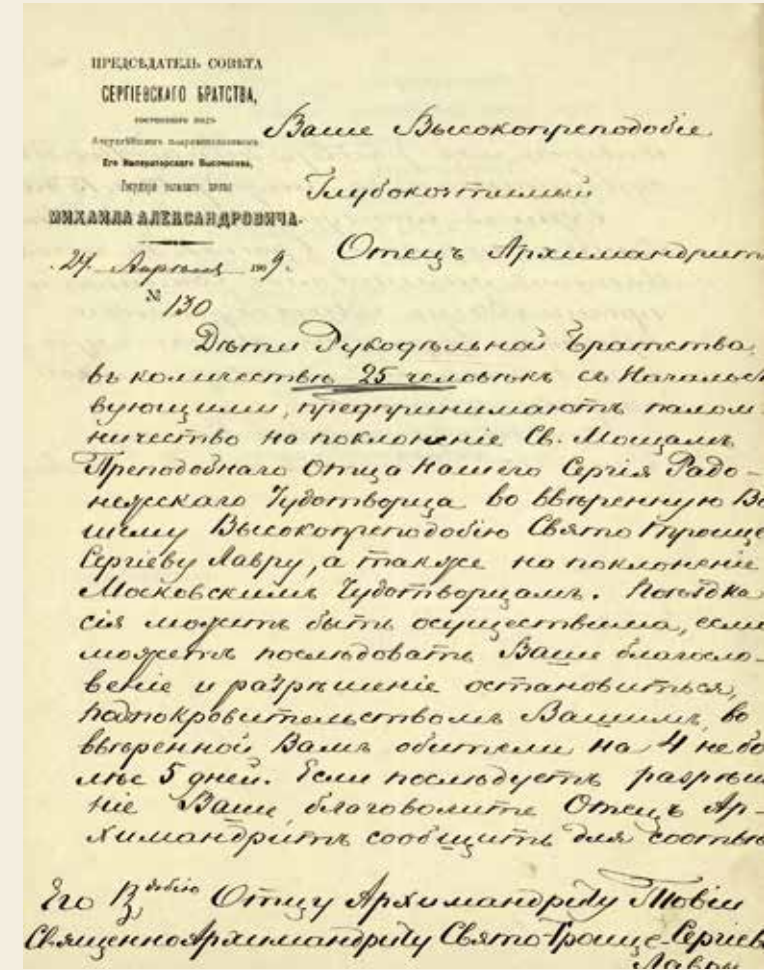 ПРЕДСѢДАТЕЛЬ СОВѢТА
СЕРГІЕВСКАГО БРАТСТВА,
состоящаго подъ
Августѣйшимъ покровительствомъ
Его Императорскаго Высочества,
Государя великаго князя
МИХАИЛА АЛЕКСАНДРОВИЧА.
24 Апрѣля 1909.
№ 130
Ваше Высокопреподобіе
Глубокочтимый
Отецъ Архимандритъ
Дѣти Рукодѣльной Братства,
въ количествѣ 25 человѣкъ съ Начальст
вующими, предпринимаютъ палом
ничество на поклоненіе Св. Мощамъ
Преподобнаго Отца Нашего Сергія Радо-
нежскаго Чудотворца во ввѣренную Ва
шему Высокопреподобію Свято Троице
Сергіеву Лавру, а также на поклоненіе
Московскимъ Чудотворцамъ. Поѣздка
сія можетъ быть осуществима, если
можетъ послѣдовать Ваше благосло-
веніе и разрѣшеніе остановиться,
подъ покровительствомъ Вашимъ, во
ввѣренной Вамъ обители на 4 не бо
лѣе 5 дней. Если послѣдуетъ разрѣше
ніе Ваше, благоволите Отецъ Ар-
химандритъ сообщить для соотвѣт
Его В добію Отцу Архимандриту Товіи
Священно Архимандриту Свято-Троице-Сергіев
Лавры